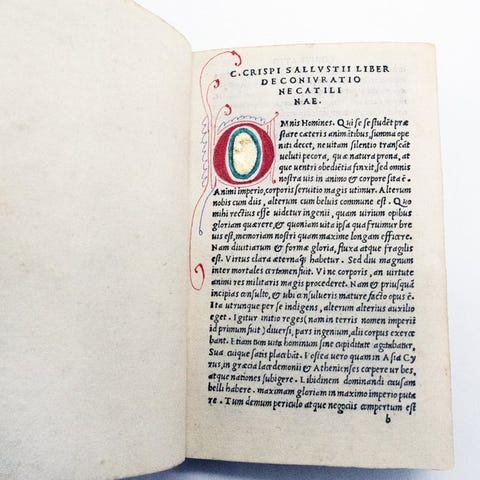 C. CRISPI SALLVSTII LIBER
DE CONIVRATIO
NE CATILI
NAE.
OMnis Homines. Qui se se studẽt præ
stare cæteris animãtibus, summa ope
niti decet, ne uitam silentio transeãt
ueluti pecora, quæ natura prona, at
que uentri obediẽtia finxit, sed omnis
nostra uis in animo & corpore sita ẽ.
Animi imperio, corporis seruitio magis utimur. Alterum
nobis cum diis, alterum cum beluis commune est. Quo
mihi rectius esse uidetur ingenii, quam uirium opibus
gloriam quærere, & quoniam uita ipsa qua fruimur bre
uis est, memoriam nostri quam maxime longam efficere.
Nam diuitiarum & formæ gloria, fluxa atque fragilis
est. Virtus clara æternaq; habetur. Sed diu magnum
inter mortales certamen fuit. Vi ne corporis, an uirtute
animi res militaris magis procederet. Nam & priusquã
incipias consulto, & ubi consulueris mature facto opus ẽ.
Ita utrunque per se indigens, alterum alterius auxilio
eget. Igitur initio reges (nam in terris nomen imperii
id primum fuit) diuersi, pars ingenium, alii corpus exerce
bant. Etiam tum uita hominum sine cupiditate agitabatur,
Sua cuique satis placebãt. Postea uero quam in Asia Cy
rus, in græcia lacedæmonii & Athenienses cœpere urbes,
atque nationes subigere. Libidinem dominandi causam
belli habere. maximam gloriam in maximo imperio puta
re. Tum demum periculo atque negociis compertum est
b